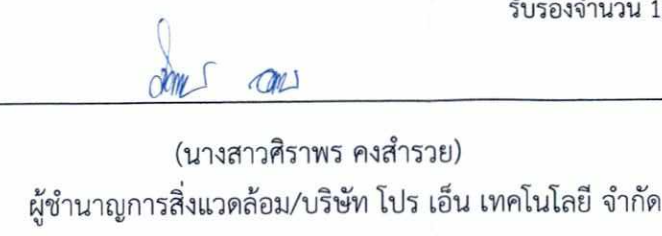 รับรองจำนวน 1
(นางสาวศิราพร คงสำรวย)
ผู้ชำนาญการสิ่งแวดล้อม/บริษัท โปร เอ็น เทคโนโลยี จำกัด